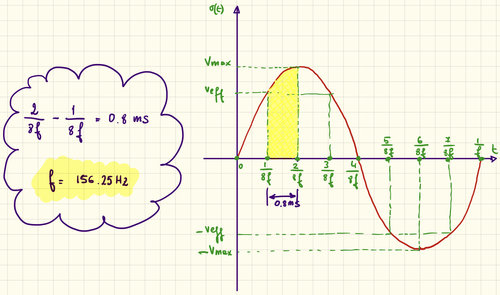 2/8f - 1/8f = 0.8 ms
f = 156.25 Hz
v(t)
Vmax
Veff
0
1/8f
2/8f
3/8f
4/8f
5/8f
6/8f
7/8f
1/f
t
0.8ms
-Veff
-Vmax